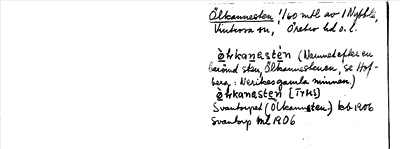 Ölkannesten, 1/60 mtl av 1 Nybble,
Vintrosa sn, Örebro hd o. l.
ò̀lkanastén (Namnet efter en
berömd sten, Ölkannestenen, se Hof-
berg: Nerikes gamla minnen)
ò̀lkanastèn [TYHS]
Svantorpet (Ölkannesten) kb 1906
Svantorp ml 1906